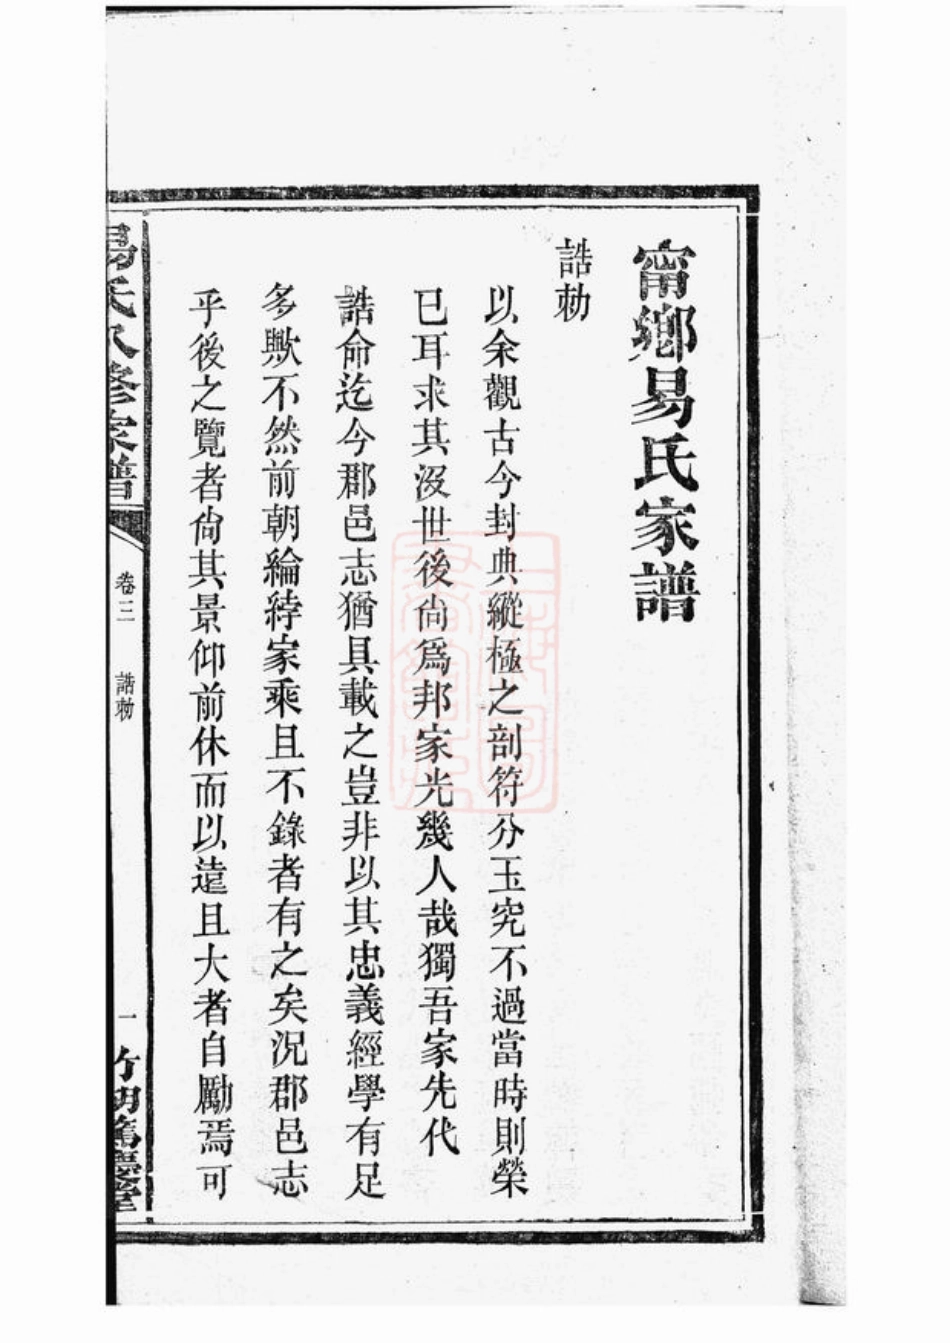 甯鄉易氏家譜
誥勅
以余觀古今封典縱極之剖符分玉究不過當時則榮
已耳求其沒世後尙爲邦家光幾人哉獨吾家先代
誥命迄今郡邑志猶具載之豈非以其忠義經學有足
多歟不然前朝綸綍家乘且不錄者有之矣況郡邑志
乎後之覽者尙其景仰前休而以遠且大者自勵焉可
易氏八修家譜
卷三
誥勅
一